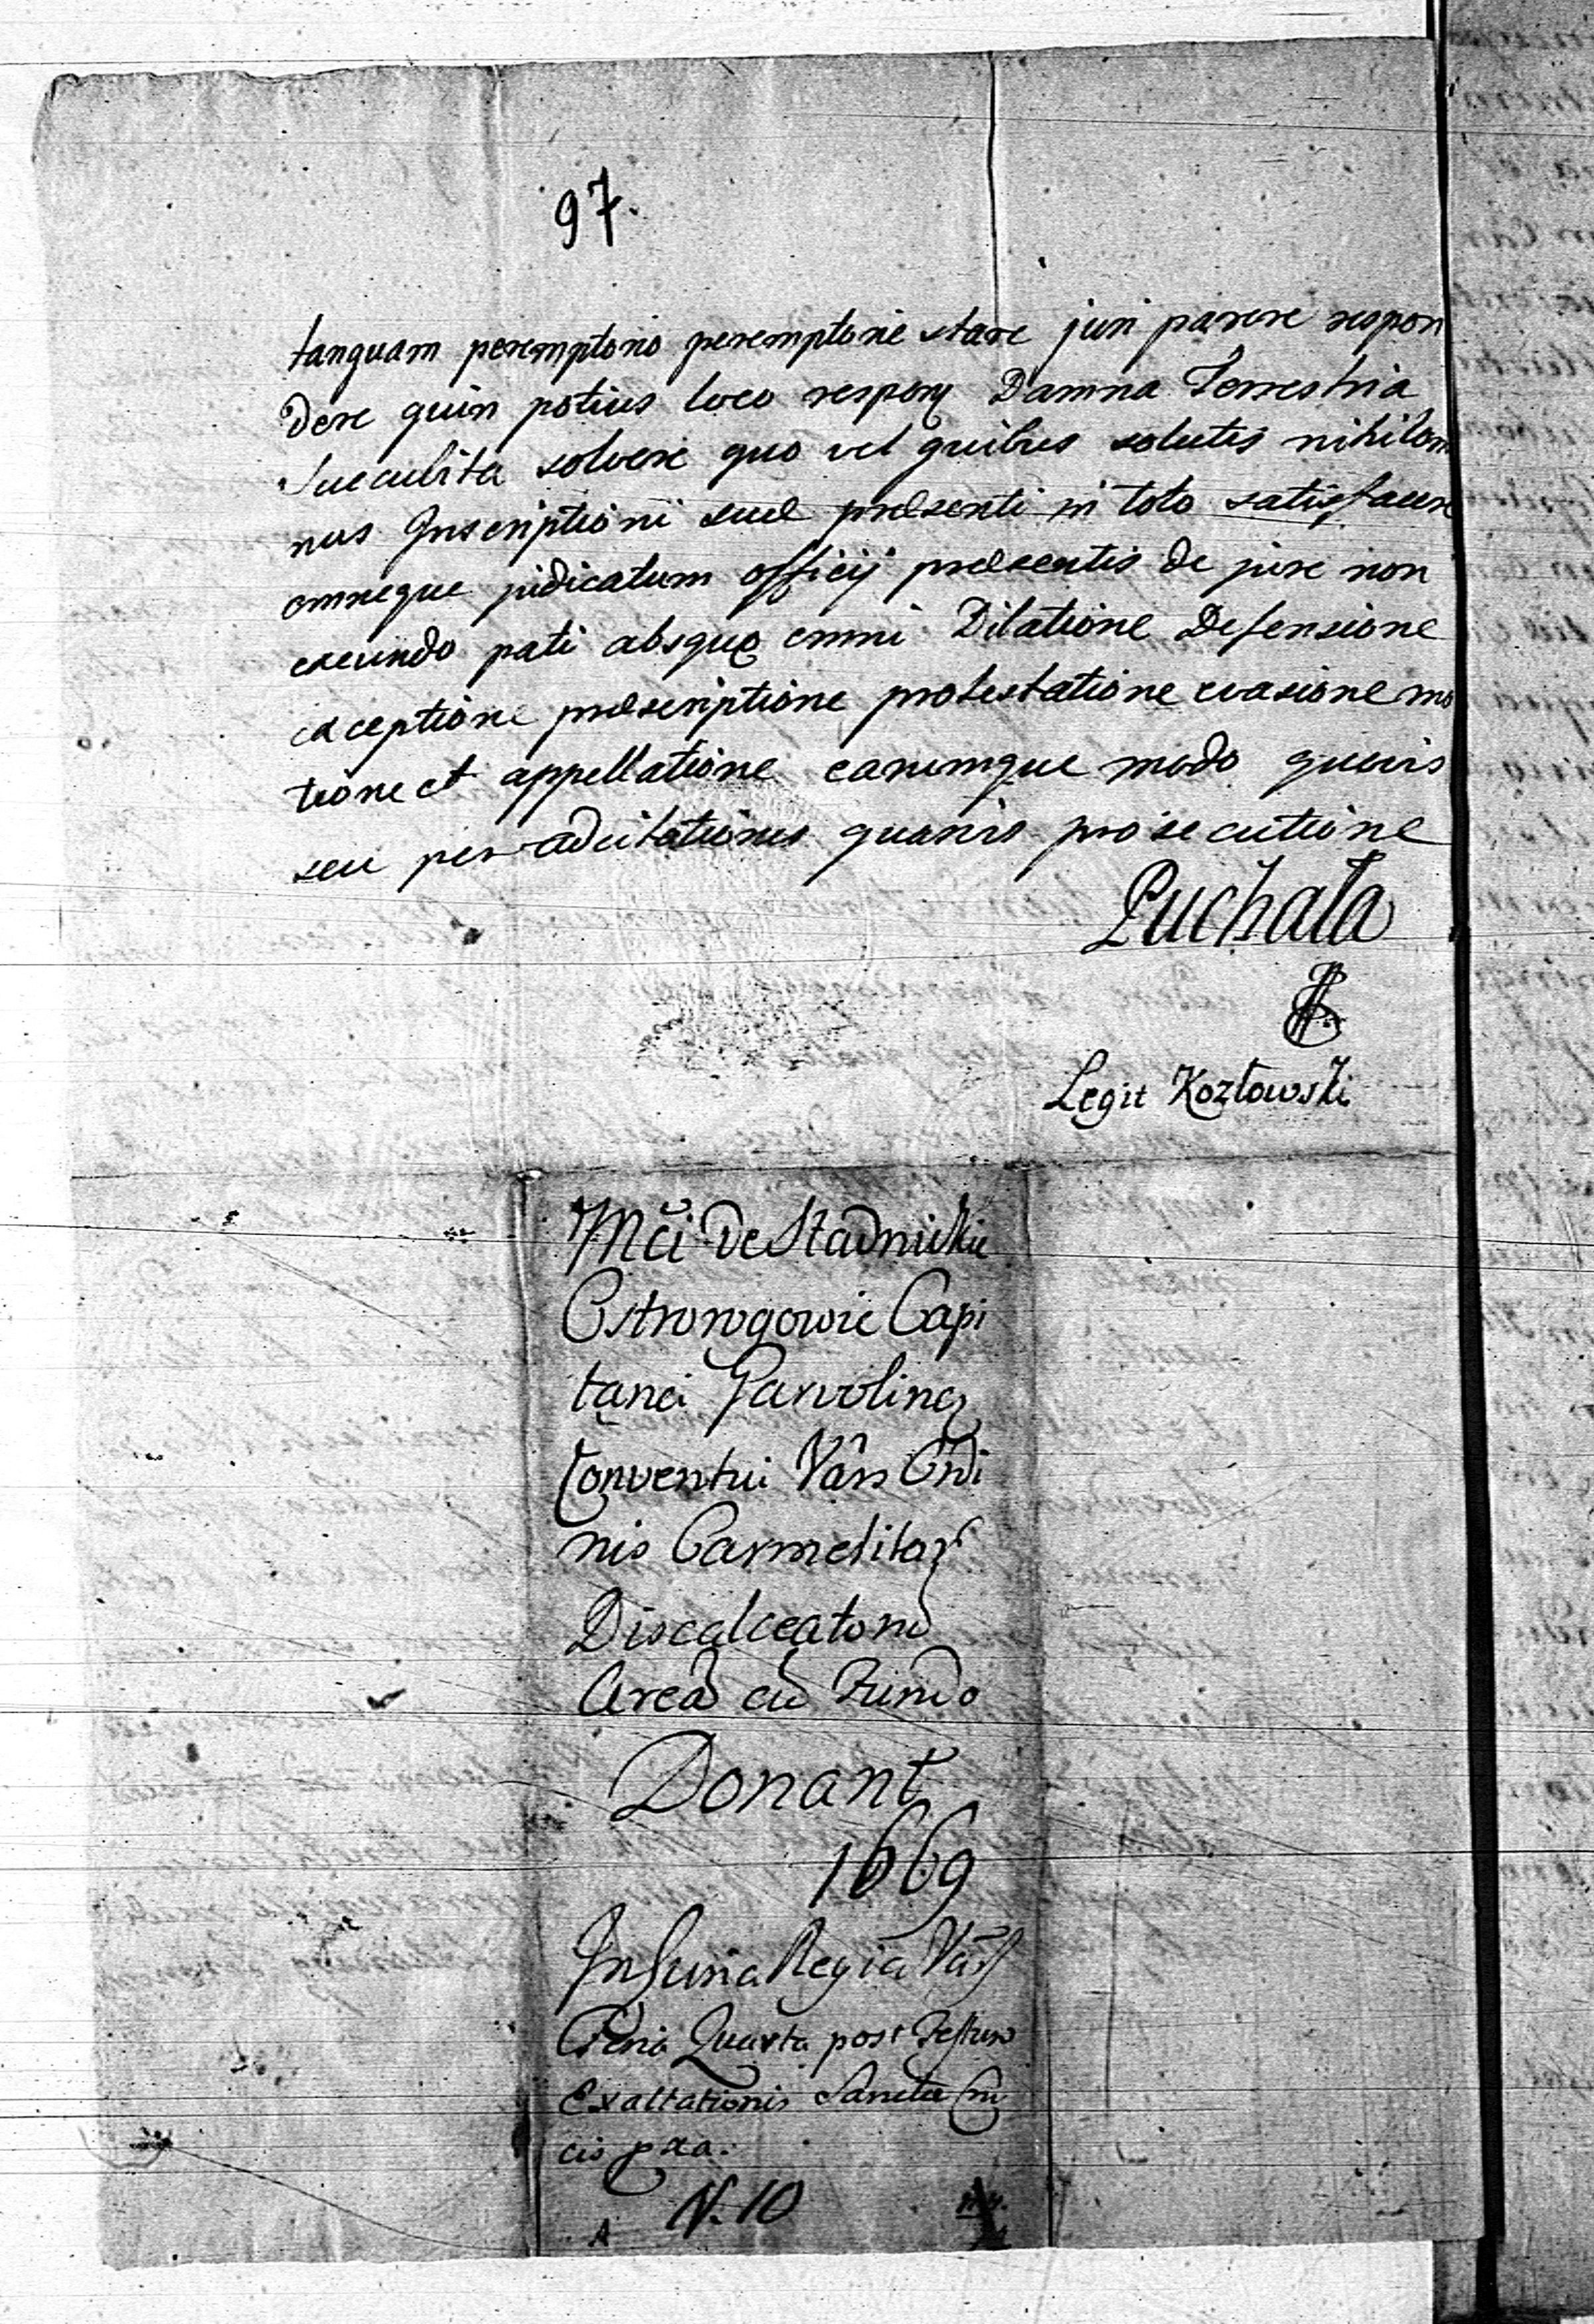 97.
tanquam peremptorio peremptorie stare juri parere respon
dere quin potius loco respons Damna Terrestria
succubita solvere quo vel quibus solutis nihilom
nus Inscriptioni suæ præsenti in toto satisfacere
omneque judicatum officij præsentis de jure non
exeundo pati absque omni Dilatione Defensione
exceptione præscriptione protestatione evasione mo
tione et appellatione earumque modo quovis
seu per adcitationis quasvis prosecutione
Puchała
Legit Kozłowski
Mci de Stadnickie
Ostrorogowie Capi
tanei Garvolinen
Conventui Vars Ordi
nis Carmelitar
Discalceatorū
Areā cū Fundo
Donant
1669
In Curia Regia Vars
Feria Quarta post Festum
Exaltationis Sanctæ Cru
cis pxa.
N. 10
A